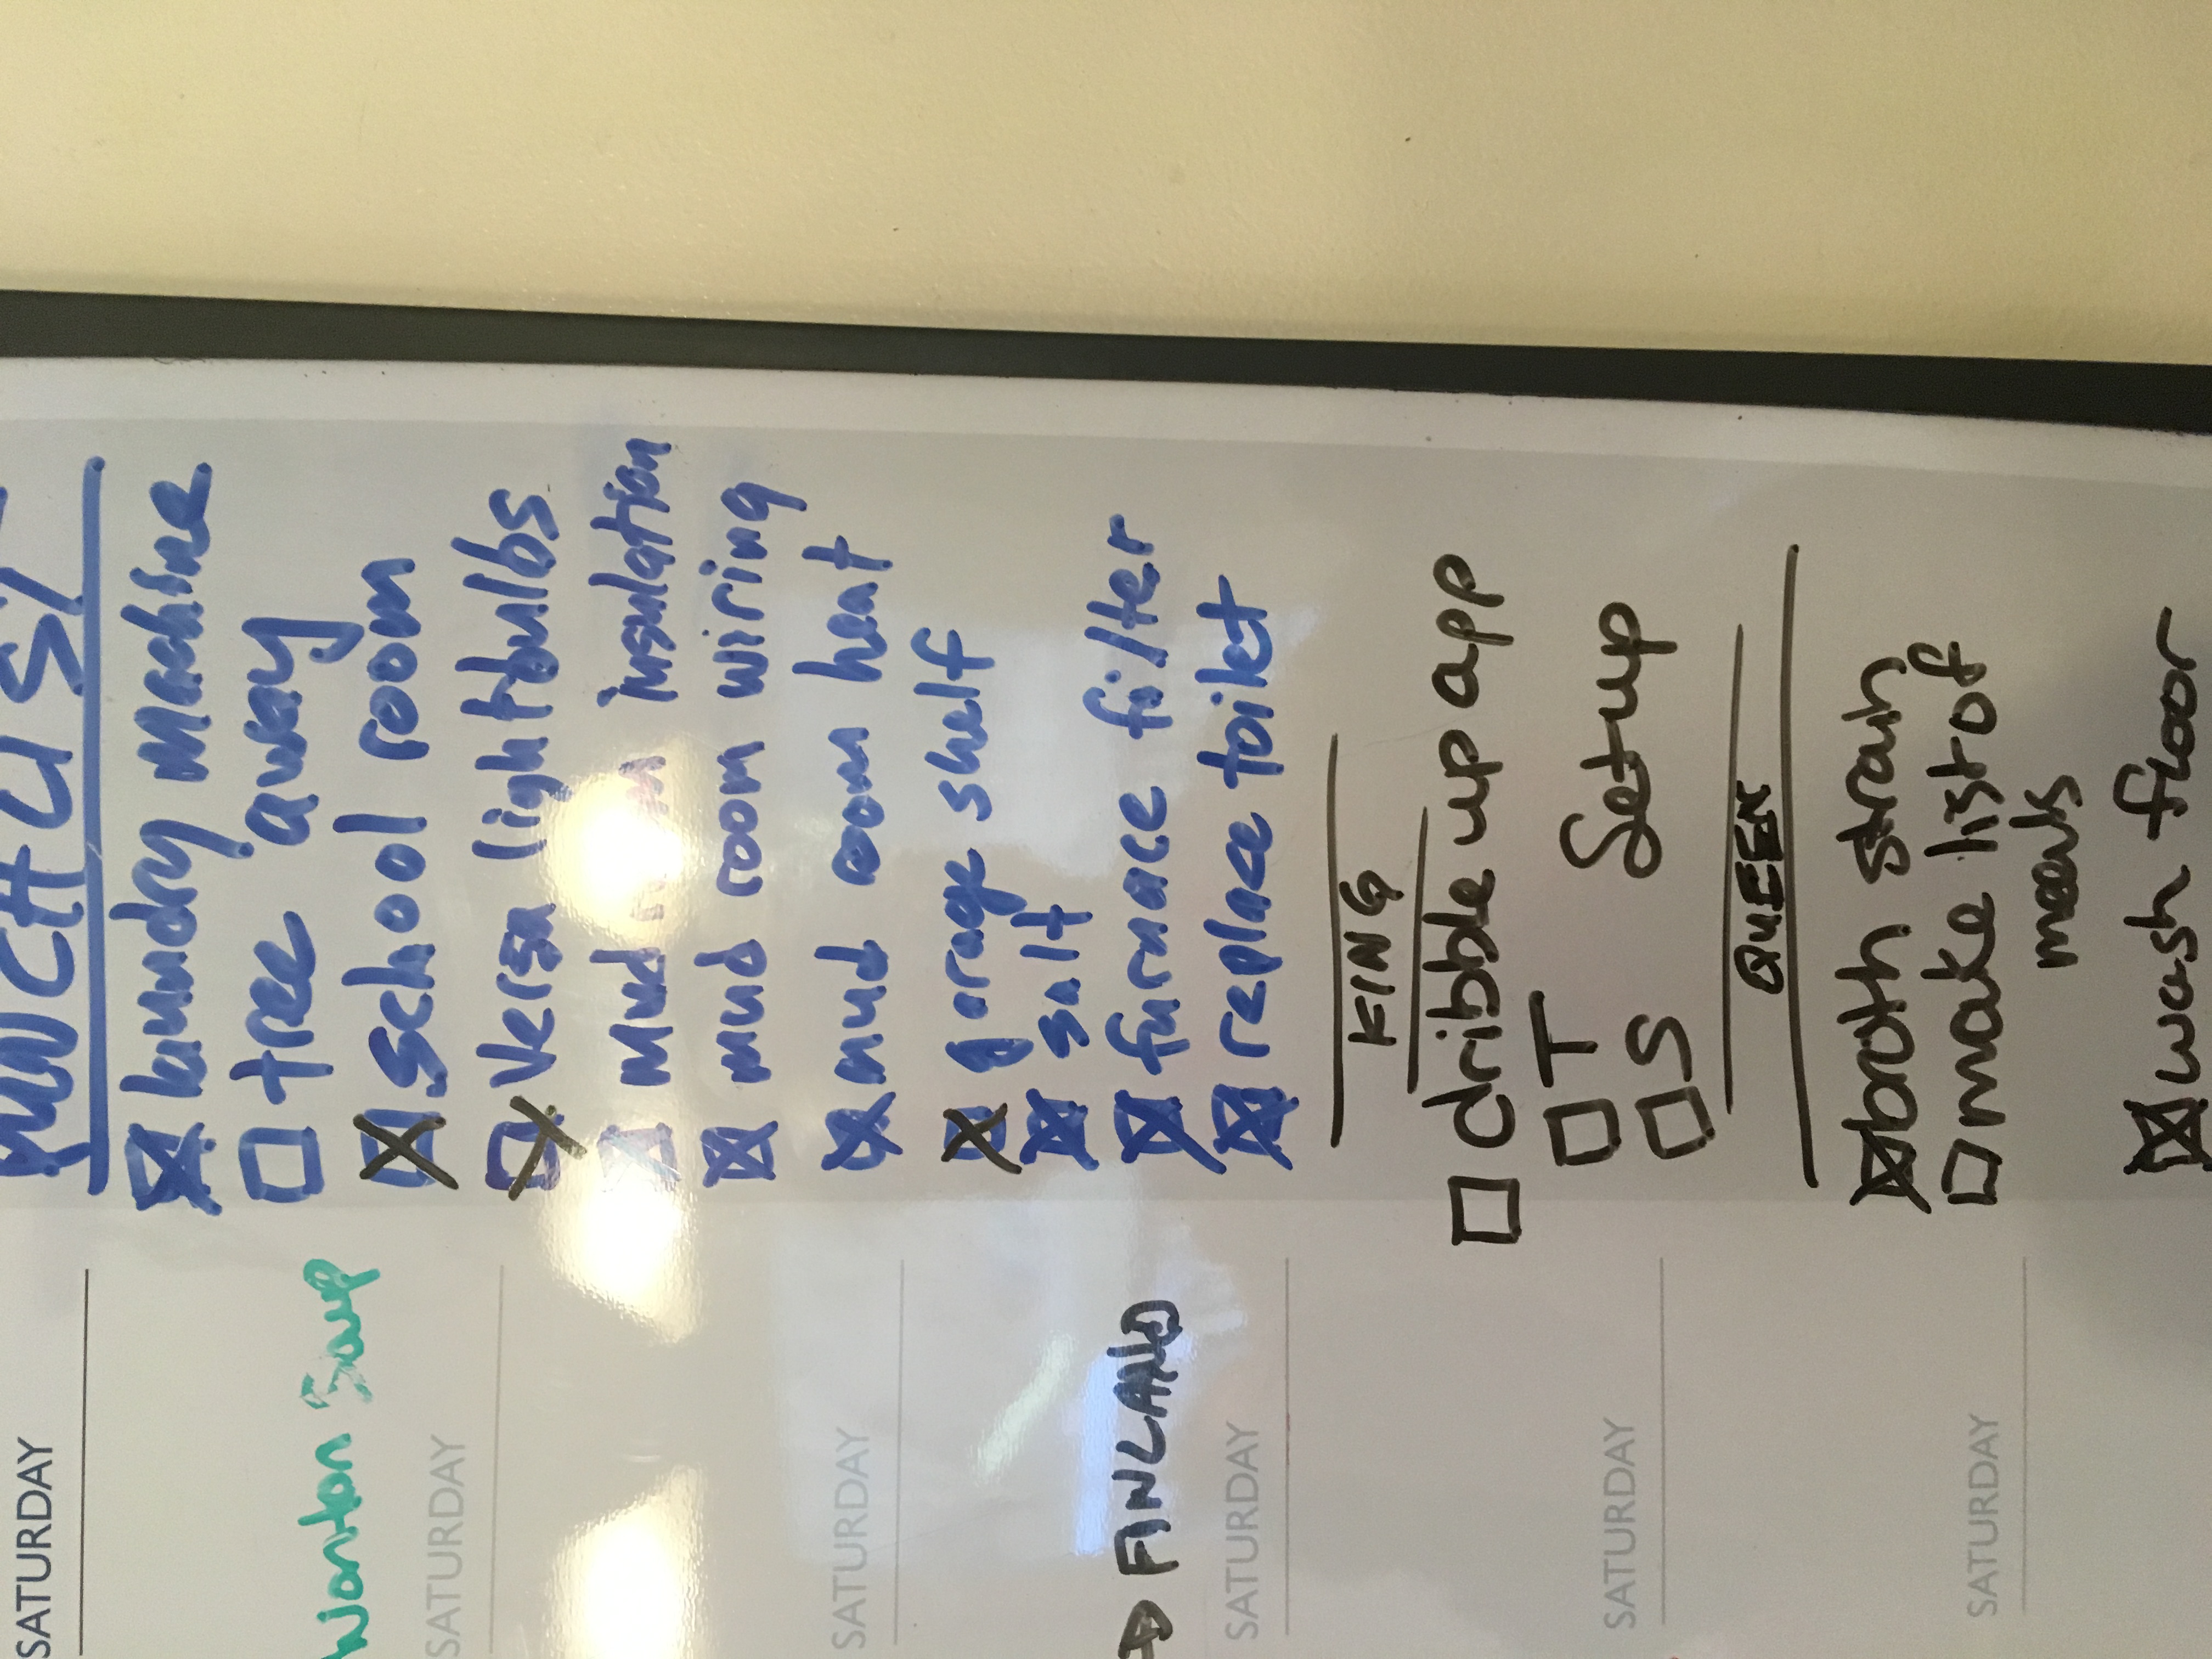 SATURDAY
Wonton Soup
SATURDAY
SATURDAY
→ FINLAND
SATURDAY
SATURDAY
SATURDAY
PUNCHLIST
laundry machine
tree away
school room
Versa lightbulbs
mud room insulation
mud room wiring
mud room heat
garage shelf
salt
furnace filter
replace toilet
KING
dribble up app
T Setup
S
QUEEN
broth strain
make list of
meals
wash floor